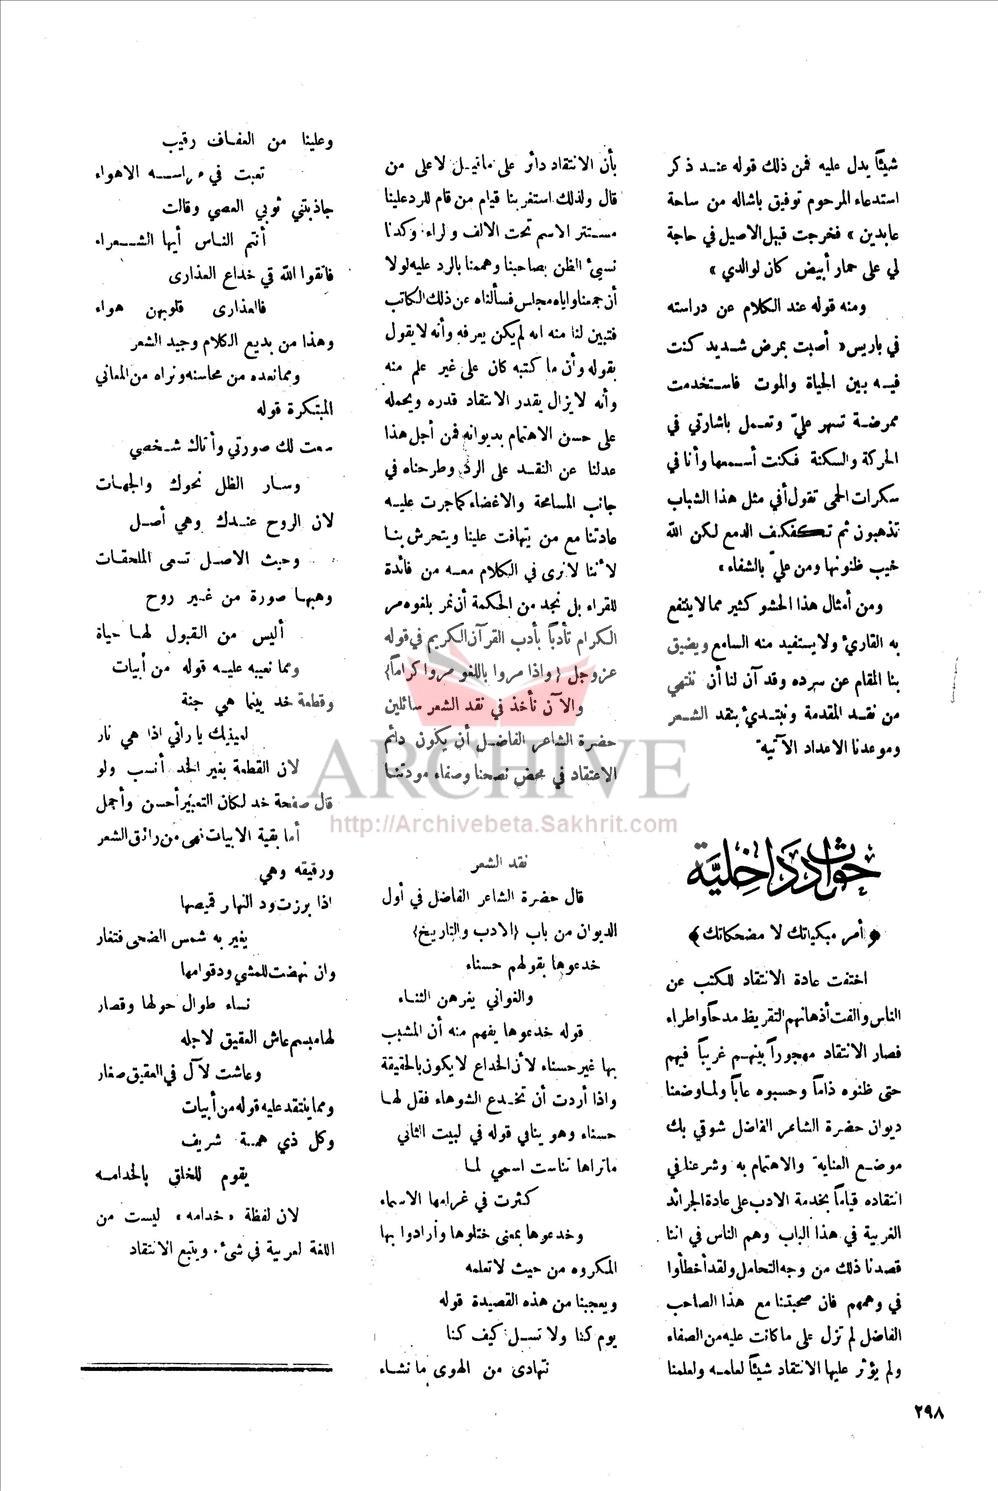 شيئاً يدل عليه فمن ذلك قوله عند ذكر
استدعاء المرحوم توفيق باشاله من ساحة
عابدين » فخرجت قبيل الاصيل في حاجة
لي على حمار أبيض كان لوالدي »
ومنه قوله عند الكلام عن دراسته
في باريس « أصبت بمرض شديد كنت
فيه بين الحياة والموت فاستخدمت
ممرضة تسهر عليّ وتعمل باشارتي في
الحركة والسكنة فكنت أسمعها وأنا في
سكرات الحمى تقول أفي مثل هذا الشباب
تذهبون ثم تكفكف الدمع لكن الله
خيب ظنونها ومن عليّ بالشفاء »
ومن أمثال هذا الحشو كثير مما لا ينتفع
به القارئ ولا يستفيد منه السامع ويضيق
بنا المقام عن سرده وقد آن لنا أن ننتهي
من نقد المقدمة ونبتدئ بنقد الشعر
وموعدنا الاعداد الآتية
حوادث داخلية
﴿ أمر مبكياتك لا مضحكاتك ﴾
اختفت عادة الانتقاد للكتب عن
الناس والفت أذهانهم التقريظ مدحاً واطراء
فصار الانتقاد مهجوراً بينهم غريباً فيهم
حتى ظنوه ذاماً وحسبوه عاباً ولما وضعنا
ديوان حضرة الشاعر الفاضل شوقي بك
موضع العناية والاهتمام به وشرعنا في
انتقاده قياماً بخدمة الادب على عادة الجرائد
الغربية في هذا الباب وهم الناس في اننا
قصدنا ذلك من وجه التحامل ولقد أخطأوا
في وهمهم فان صحبتنا مع هذا الصاحب
الفاضل لم تزل على ما كانت عليه من الصفاء
ولم يؤثر عليها الانتقاد شيئاً لعلمه ولعلمنا
بأن الانتقاد دائر على ما قيل لا على من
قال ولذلك استغربنا قيام من قام للرد علينا
مستتر الاسم تحت الالف والراء وكدنا
نسيئ الظن بصاحبنا وهممنا بالرد عليه لولا
أن جمعنا واياه مجلس فسألناه عن ذلك الكاتب
فتبين لنا منه انه لم يكن يعرفه وأنه لا يقول
بقوله وأن ما كتبه كان على غير علم منه
وأنه لا يزال يقدر الانتقاد قدره ويحمله
على حسن الاهتمام بديوانه فمن أجل هذا
عدلنا عن النقد على الرد وطرحناه في
جانب المسامحة والاغضاء كما جرت عليه
عادتنا مع من يتهافت علينا ويتحرش بنا
لأننا لا نرى في الكلام معه من فائدة
للقراء بل نجد من الحكمة أن نمر بلغوه مر
الكرام تأدباً بأدب القرآن الكريم في قوله
عز وجل {واذا مروا باللغو مروا كراماً}
والآن نأخذ في نقد الشعر سائلين
حضرة الشاعر الفاضل أن يكون دائم
الاعتقاد في محض نصحنا وصفاء مودتنا
نقد الشعر
قال حضرة الشاعر الفاضل في أول
الديوان من باب {الادب والتاريخ}
خدعوها بقولهم حسناء
والغواني يغرهن الثناء
قوله خدعوها يفهم منه أن المشبب
بها غير حسناء لأن الخداع لا يكون بالحقيقة
واذا أردت أن تخدع الشوهاء فقل لها
حسناء وهو ينافي قوله في لبيت الثاني
ما تراها تناست اسمي لما
كثرت في غرامها الاسماء
وخدعوها بمعنى ختلوها وأرادوا بها
المكروه من حيث لا تعلمه
ويعجبنا من هذه القصيدة قوله
يوم كنا ولا تسل كيف كنا
نتهادى من الهوى ما نشاء
وعلينا من العفاف رقيب
تعبت في مراسه الاهواء
جاذبتني ثوبي العصي وقالت
أنتم الناس أيها الشعراء
فاتقوا الله في خداع العذارى
فالعذارى قلوبهن هواء
وهذا من بديع الكلام وجيد الشعر
ومما نعده من محاسنه ونراه من المعاني
المبتكرة قوله
سعت لك صورتي وأتاك شخصي
وسار الظل نحوك والجهات
لان الروح عندك وهي أصل
وحيث الاصل تسعى الملحقات
وهبها صورة من غير روح
أليس من القبول لها حياة
ومما نعيبه عليه قوله من أبيات
وقطعة خد بينما هي جنة
لعينيك يا رائي اذا هي نار
لان القطعة بغير الخد أنسب ولو
قال صفحة خد لكان التعبير أحسن وأجمل
أما بقية الابيات فهي من رائق الشعر
ورقيقه وهي
اذا برزت ود النهار قميصها
يغير به شمس الضحى فتغار
وان نهضت للمشي ودقوامها
نساء طوال حولها وقصار
لها مبسم عاش العقيق لاجله
وعاشت لآل في العقيق صغار
ومما ينتقد عليه قوله من أبيات
وكل ذي همة شريف
يقوم للخلق بالخدامه
لان لفظة «خدامه» ليست من
اللغة لعربية في شئ. ويتبع الانتقاد
٢٩٨
ARCHIVE
http://Archivebeta.Sakhrit.com